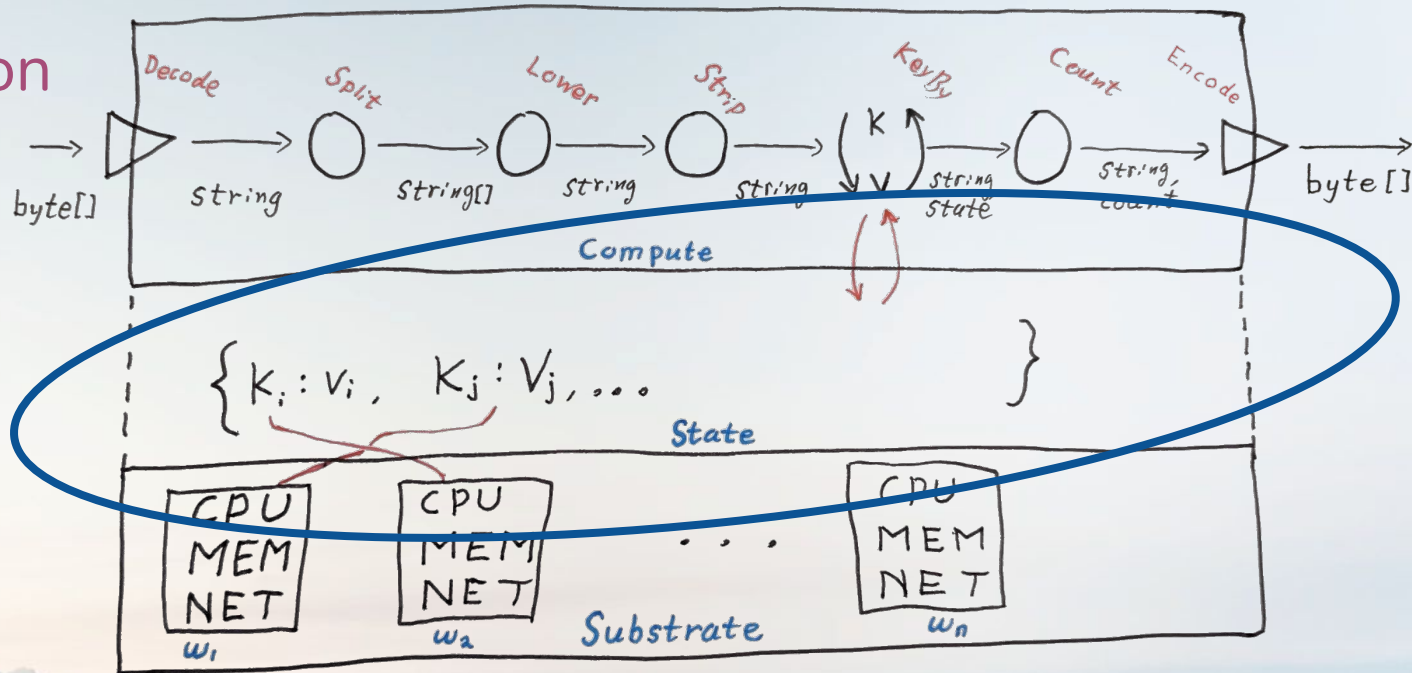 on
Decode Split Lower Strip KeyBy Count Encode
K
V
byte[] string string[] string string string state string, count byte[]
Compute
{ Ki : Vi, Kj : Vj, ... }
State
CPU MEM NET
CPU MEM NET
...
CPU MEM NET
w1 w2 Substrate wn